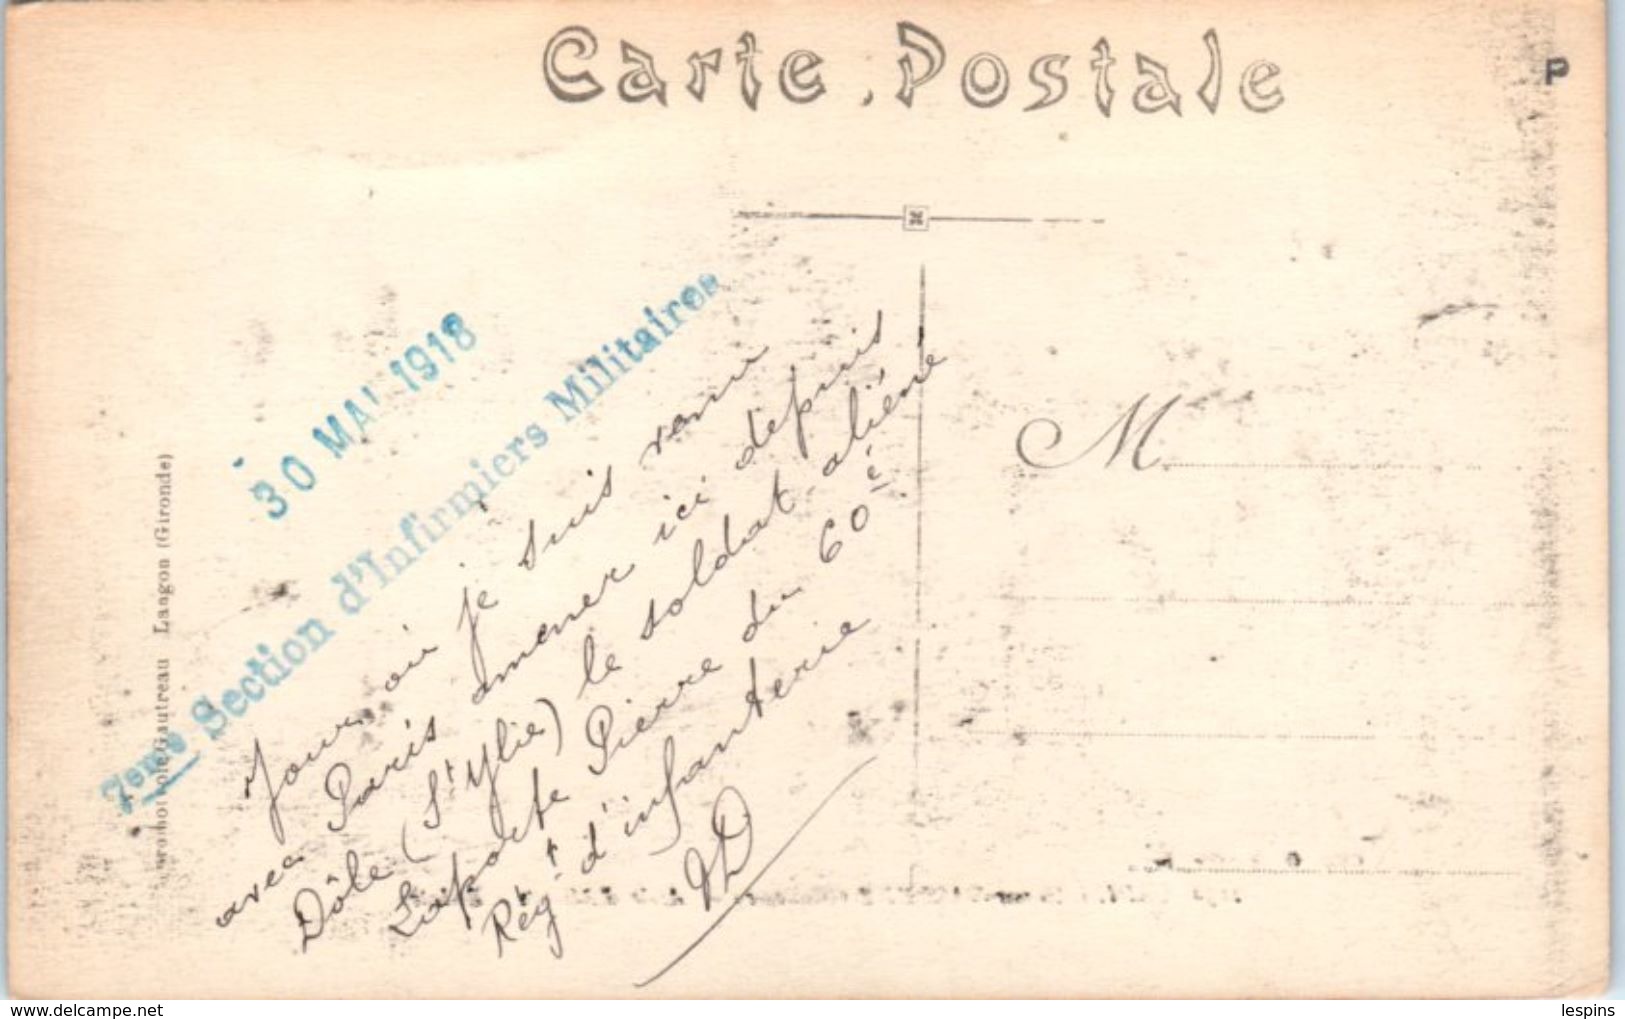 Carte Postale
P
30 MAI 1918
7eme Section d'Infirmiers Militaires
Jour où je suis venu
avec Paris amener ici depuis
Dôle (St Ylie) le soldat aliéné
Laporte Pierre du 60è
Régt d'infanterie
M
Gautreau Langon (Gironde)
www.delcampe.net
lespins